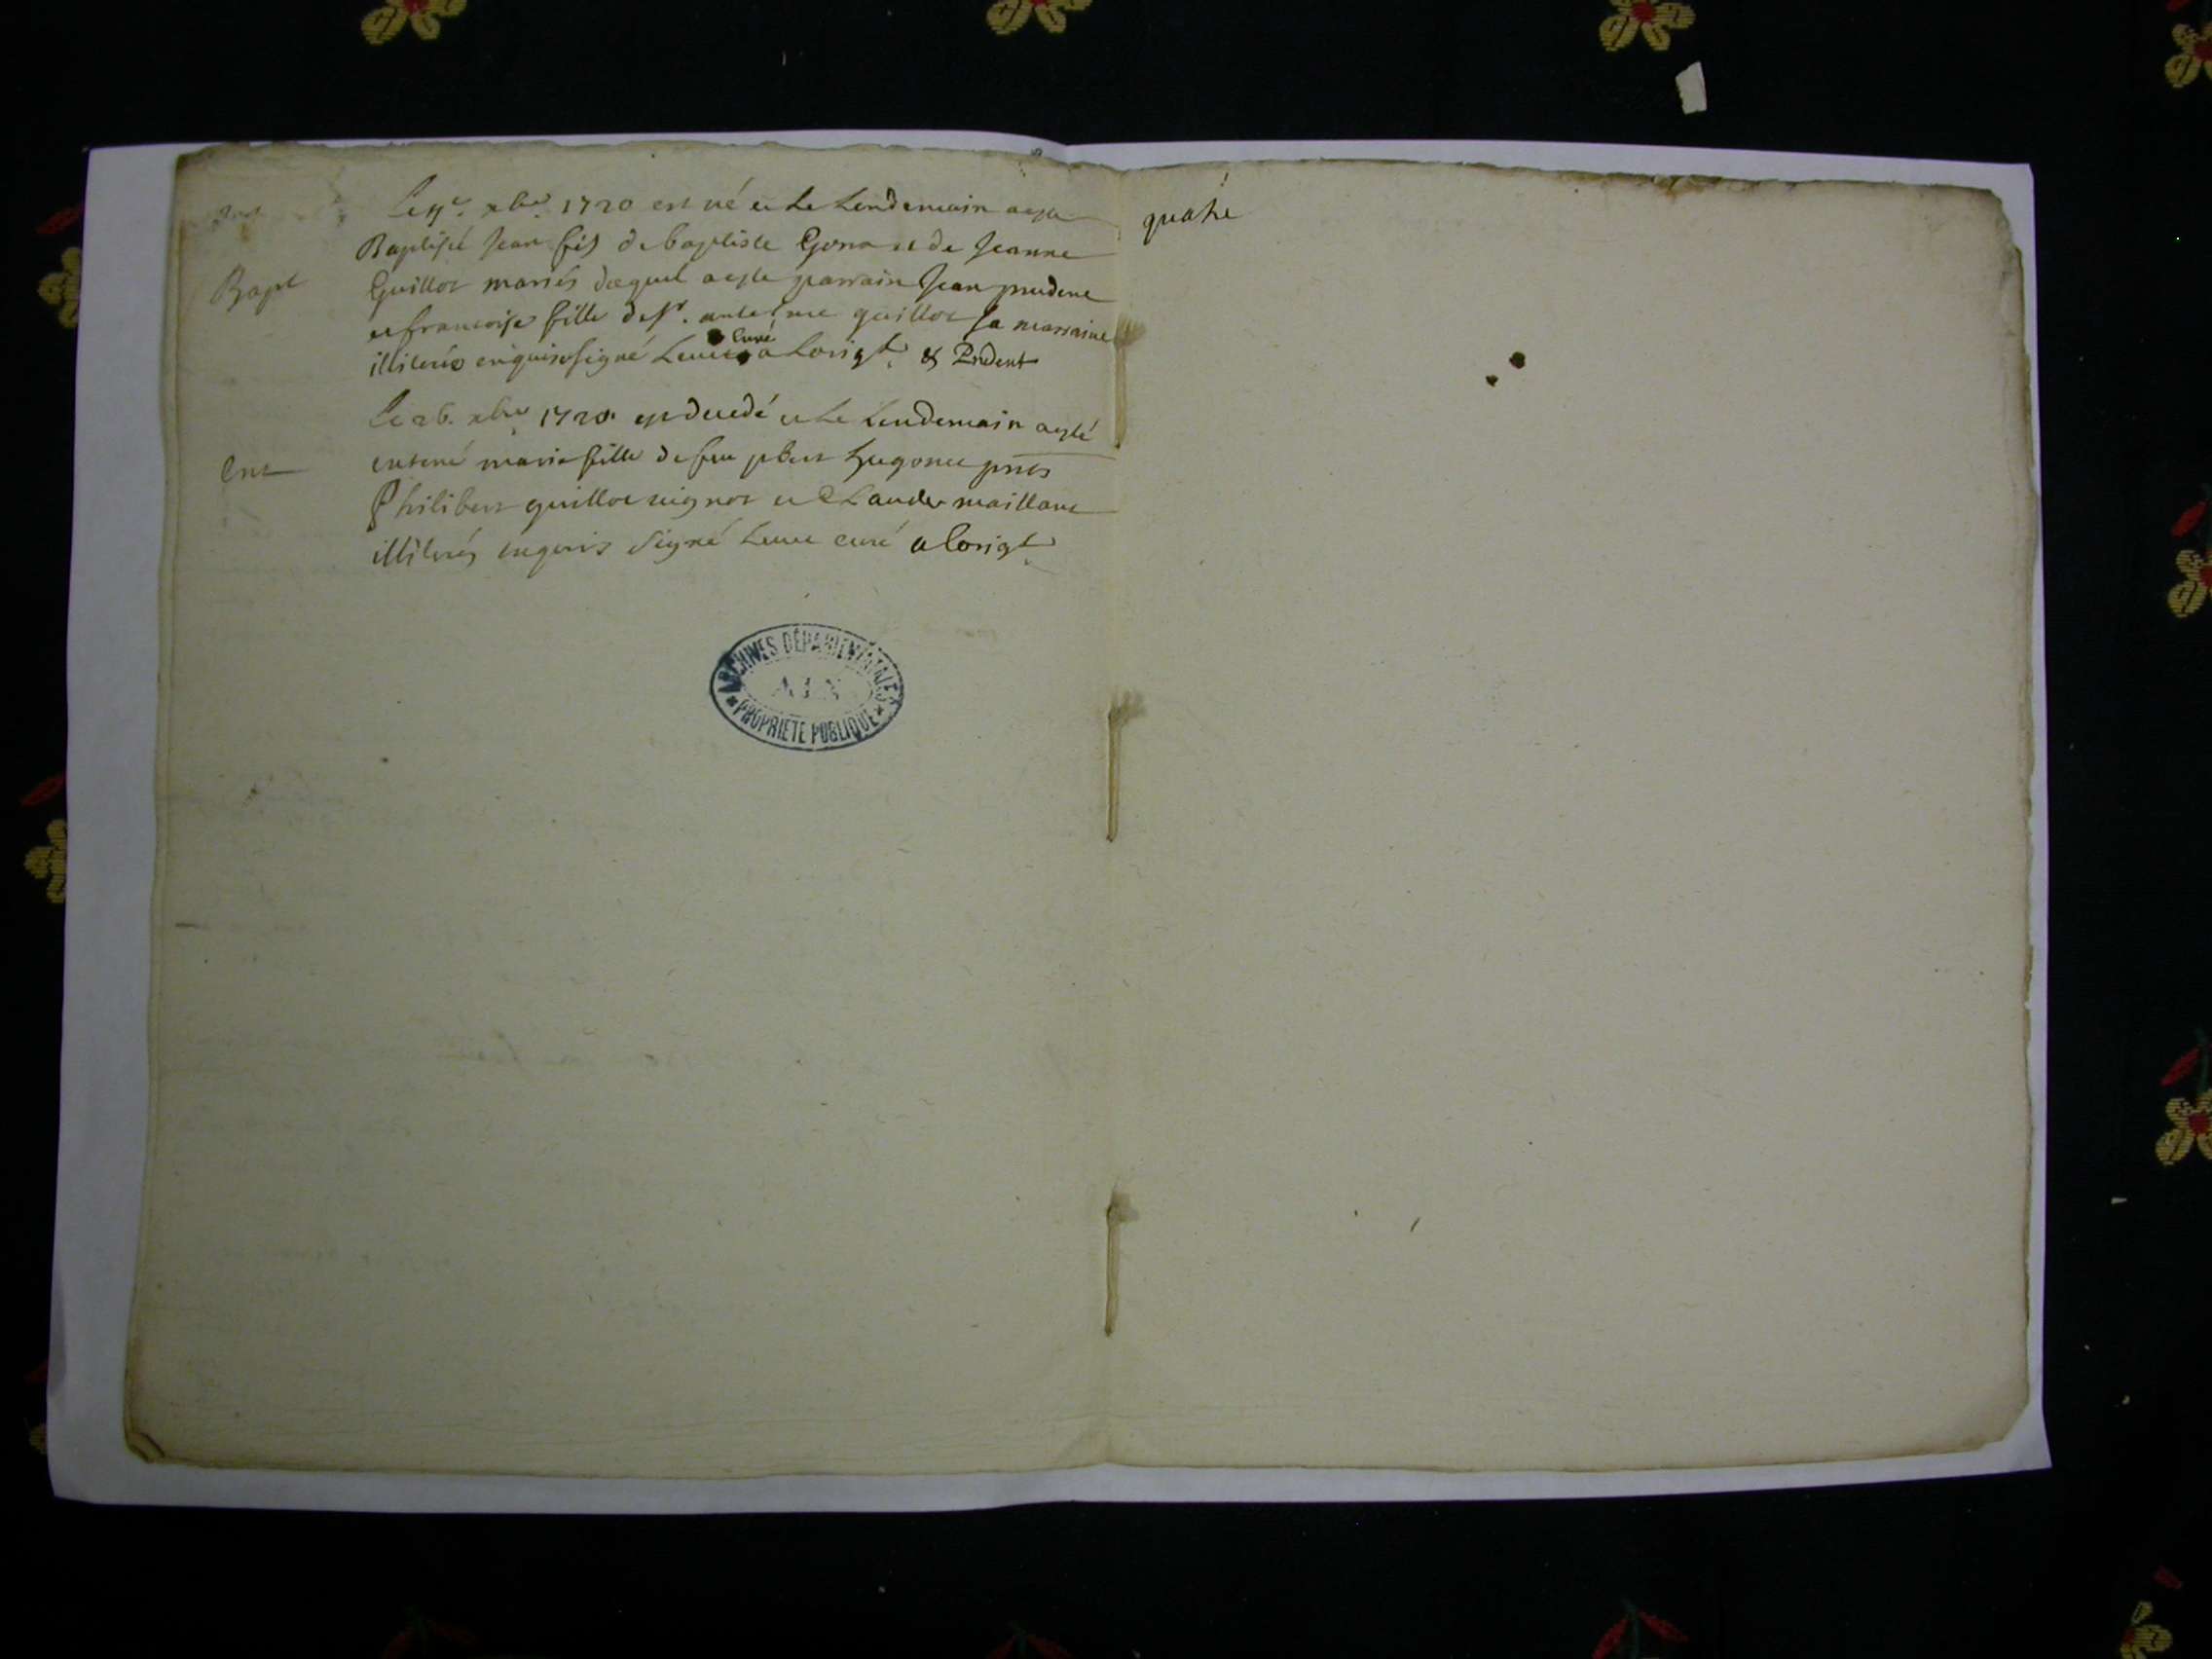 Bapt
Le xbre 1720 est né et le Lendemain
Baptisé Jean fils de baptiste Gona et de Jeanne
Guillot mariés duquel a este parrain Jean prudent
et francoise fille de sr. antelme guillot la marraine
illiteres enquis signé Curé a Lorigl. & Prudent
Ent
Le 26. xbre 1720 est decedé et le Lendemain a esté
enterré marie fille de feu pbert hugonet pnts
Philibert guillot et Claude maillant
illiterés enquis signé curé a lorigl
quatre
ARCHIVES DÉPARTEMENTALES
AIN
PROPRIETE PUBLIQUE